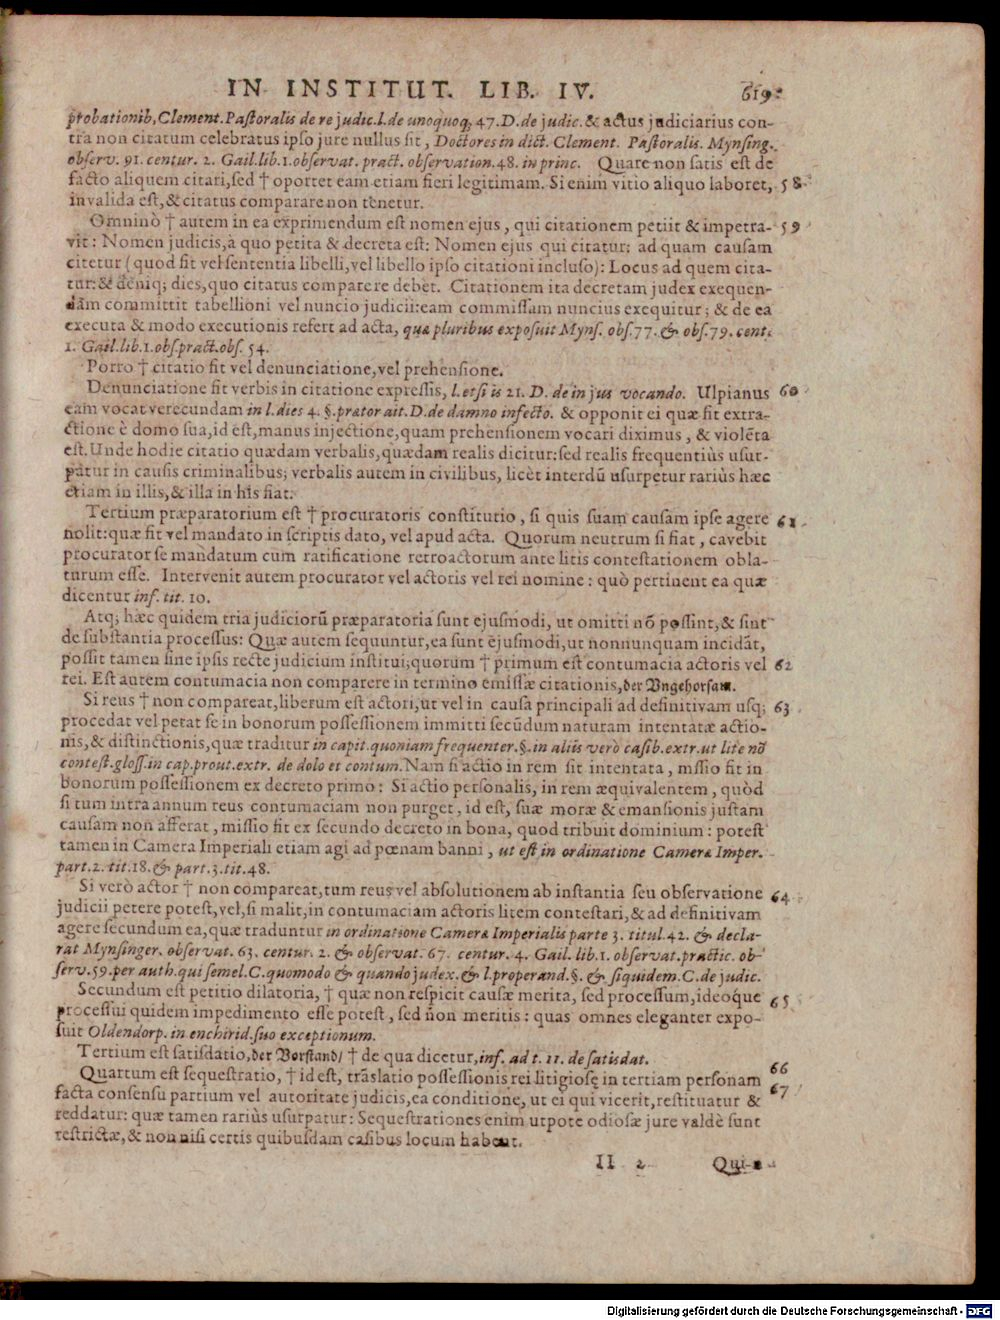 IN INSTITUT. LIB. IV. 619
probationib, Clement. Pastoralis de re judic. l. de unoquoq; 47. D. de judic. & actus judiciarius con-
tra non citatum celebratus ipso jure nullus sit, Doctores in dict. Clement. Pastoralis. Mynsing.
observ. 91. centur. 2. Gail. lib. 1. observat. pract. observation. 48. in princ. Quare non satis est de
facto aliquem citari, sed † oportet eam etiam fieri legitimam. Si enim vitio aliquo laboret, 58
invalida est, & citatus comparare non tenetur.
Omninò † autem in ea exprimendum est nomen ejus, qui citationem petiit & impetra- 59
vit: Nomen judicis, à quo petita & decreta est: Nomen ejus qui citatur: ad quam causam
citetur (quod fit vel sententia libelli, vel libello ipso citationi incluso): Locus ad quem cita-
tur: & deniq; dies, quo citatus comparere debet. Citationem ita decretam judex exequen-
dam committit tabellioni vel nuncio judicii: eam commissam nuncius exequitur; & de ea
executa & modo executionis refert ad acta, quæ pluribus exposuit Myns. obs. 77. & obs. 79. cent.
1. Gail. lib. 1. obs. pract. obs. 54.
Porro † citatio fit vel denunciatione, vel prehensione.
Denunciatione fit verbis in citatione expressis, l. etsi is 21. D. de in jus vocando. Ulpianus 60
eam vocat verecundam in l. dies 4. §. prætor ait. D. de damno infecto. & opponit ei quæ fit extra-
ctione è domo sua, id est, manus injectione, quam prehensionem vocari diximus, & violēta
est. Unde hodie citatio quædam verbalis, quædam realis dicitur: sed realis frequentiùs usur-
patur in causis criminalibus; verbalis autem in civilibus, licèt interdū usurpetur rariùs hæc
etiam in illis, & illa in his fiat.
Tertium præparatorium est † procuratoris constitutio, si quis suam causam ipse agere 61
nolit: quæ fit vel mandato in scriptis dato, vel apud acta. Quorum neutrum si fiat, cavebit
procurator se mandatum cum ratificatione retroactorum ante litis contestationem obla-
turum esse. Intervenit autem procurator vel actoris vel rei nomine: quò pertinent ea quæ
dicentur inf. tit. 10.
Atq; hæc quidem tria judiciorū præparatoria sunt ejusmodi, ut omitti nō possint, & sint
de substantia processus: Quæ autem sequuntur, ea sunt ejusmodi, ut nonnunquam incidāt,
possit tamen sine ipsis recte judicium institui; quorum † primum est contumacia actoris vel 62
rei. Est autem contumacia non comparere in termino emissæ citationis, der Vngehorsam.
Si reus † non compareat, liberum est actori, ut vel in causa principali ad definitivam usq; 63
procedat vel petat se in bonorum possessionem immitti secūdum naturam intentatæ actio-
nis, & distinctionis, quæ traditur in capit. quoniam frequenter. §. in aliis verò casib. extr. ut lite nō
contest. gloss. in cap. prout. extr. de dolo et contum. Nam si actio in rem sit intentata, missio fit in
bonorum possessionem ex decreto primo: Si actio personalis, in rem æquivalentem, quòd
si tum intra annum reus contumaciam non purget, id est, suæ moræ & emansionis justam
causam non afferat, missio fit ex secundo decreto in bona, quod tribuit dominium: potest
tamen in Camera Imperiali etiam agi ad pœnam banni, ut est in ordinatione Cameræ Imper.
part. 2. tit. 18. & part. 3. tit. 48.
Si verò actor † non compareat, tum reus vel absolutionem ab instantia seu observatione 64
judicii petere potest, vel, si malit, in contumaciam actoris litem contestari, & ad definitivam
agere secundum ea, quæ traduntur in ordinatione Cameræ Imperialis parte 3. titul. 42. & decla-
rat Mynsinger. observat. 63. centur. 2. & observat. 67. centur. 4. Gail. lib. 1. observat. practic. ob-
serv. 59. per auth. qui semel. C. quomodo & quando judex. & l. properand. §. & siquidem. C. de judic.
Secundum est petitio dilatoria, † quæ non respicit causæ merita, sed processum, ideoq́ue 65
processui quidem impedimento esse potest, sed non meritis: quas omnes eleganter expo-
suit Oldendorp. in enchirid. suo exceptionum.
Tertium est satisdatio, der Vorstand/ † de qua dicetur, inf. ad t. 11. de satisdat. 66
Quartum est sequestratio, † id est, trāslatio possessionis rei litigiosę in tertiam personam 67
facta consensu partium vel autoritate judicis, ea conditione, ut ei qui vicerit, restituatur &
reddatur: quæ tamen rariùs usurpatur: Sequestrationes enim utpote odiosæ jure valdè sunt
restrictæ, & non nisi certis quibusdam casibus locum habent.
II 2 Qui-
Digitalisierung gefördert durch die Deutsche Forschungsgemeinschaft - DFG